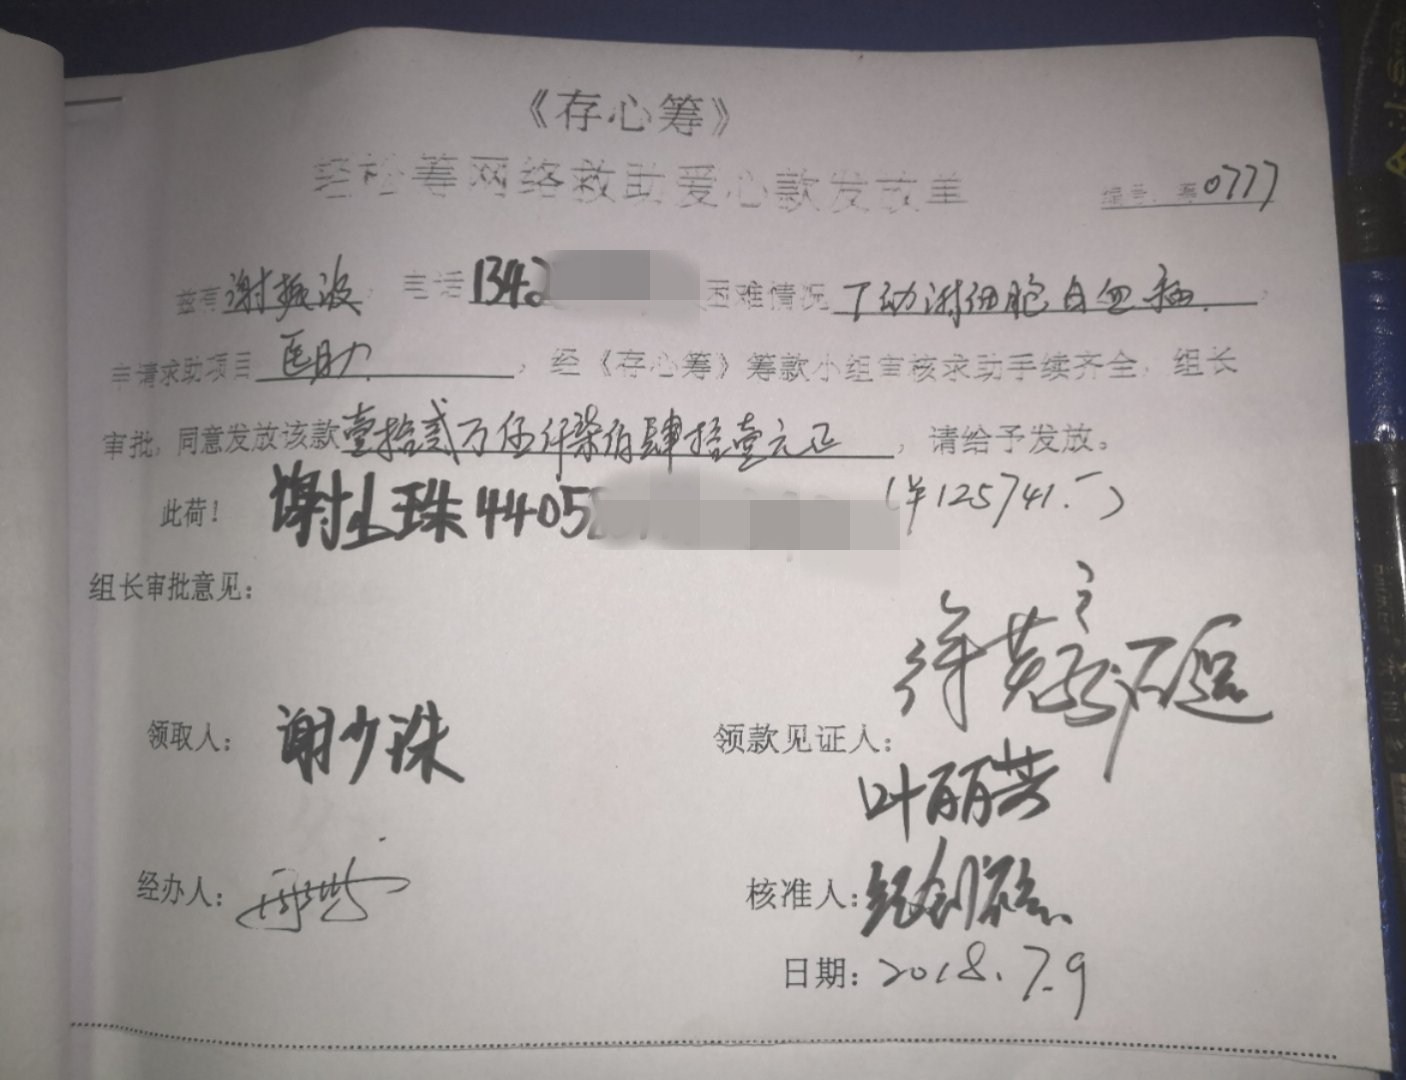 《存心筹》
轻松筹网络救助爱心款发放单
编号：筹0777
兹有谢振波，电话1342 困难情况T动谢细胞白血病，
申请求助项目医助，经《存心筹》筹款小组审核求助手续齐全，组长
审批，同意发放该款壹拾贰万伍仟柒佰肆拾壹元正，请给予发放。
此荷！谢少珠4405 (¥125741.-)
组长审批意见：
领取人：谢少珠 领款见证人：
叶丽芸
经办人： 核准人：
日期：2018.7.9